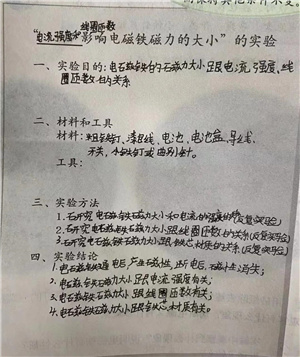 线圈匝数
"电流强度和影响电磁铁磁力的大小"的实验
一、实验目的:电磁铁的磁力大小跟电流强度、线
圈匝数的关系
二、材料和工具
材料:粗铁钉、漆包线、电池、电池盒、导线、
开关、小铁钉或曲别针。
工具:
三、实验方法
1.研究电磁铁磁力大小和电流的强度的(反复实验)
2.研究电磁铁磁力大小跟线圈匝数的关系(反复实验)
3.研究电磁铁磁力大小跟铁芯材质的关系(反复实验)
四、实验结论
1.电磁铁通电后,产生磁性,断电后,磁性消失;
2.电磁铁磁力大小跟电流强度有关;
3.电磁铁磁力大小跟线圈匝数有关;
4.电磁铁磁力大小跟铁芯材质有关。